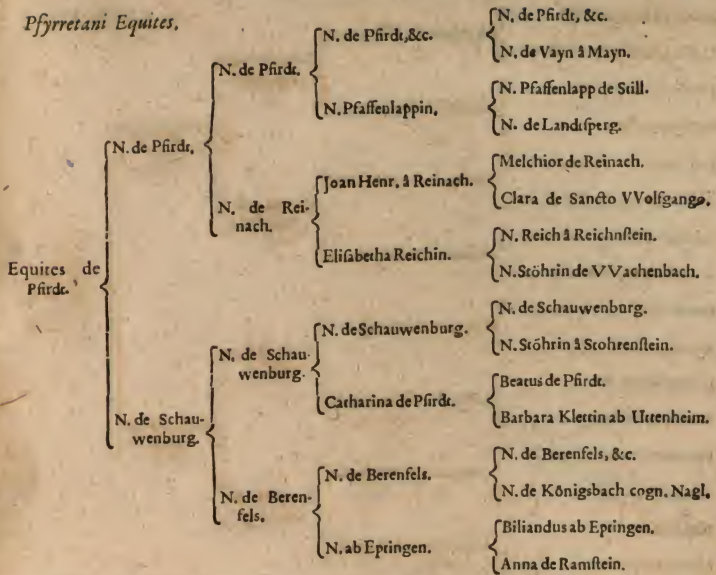 Pfyrretani Equites.
Equites de
Pfirdt.
N. de Pfirdt.
N. de Schau-
wenburg.
N. de Pfirdt.
N. de Rei-
nach.
N. de Schau-
wenburg.
N. de Beren-
fels.
N. de Pfirdt, &c.
N. Pfaffenlappin.
Joan Henr. â Reinach.
Elisabetha Reichin.
N. de Schauwenburg.
Catharina de Pfirdt.
N. de Berenfels.
N. ab Eptingen.
N. de Pfirdt, &c.
N. de Vayn â Mayn.
N. Pfaffenlapp de Still.
N. de Landtsperg.
Melchior de Reinach.
Clara de Sancto VVolfgango.
N. Reich â Reichnstein.
N. Stöhrin de VVachenbach.
N. de Schauwenburg.
N. Stöhrin â Stohrenstein.
Beatus de Pfirdt.
Barbara Klettin ab Uttenheim.
N. de Berenfels, &c.
N. de Königsbach cogn. Nagl.
Biliandus ab Eptingen.
Anna de Ramstein.